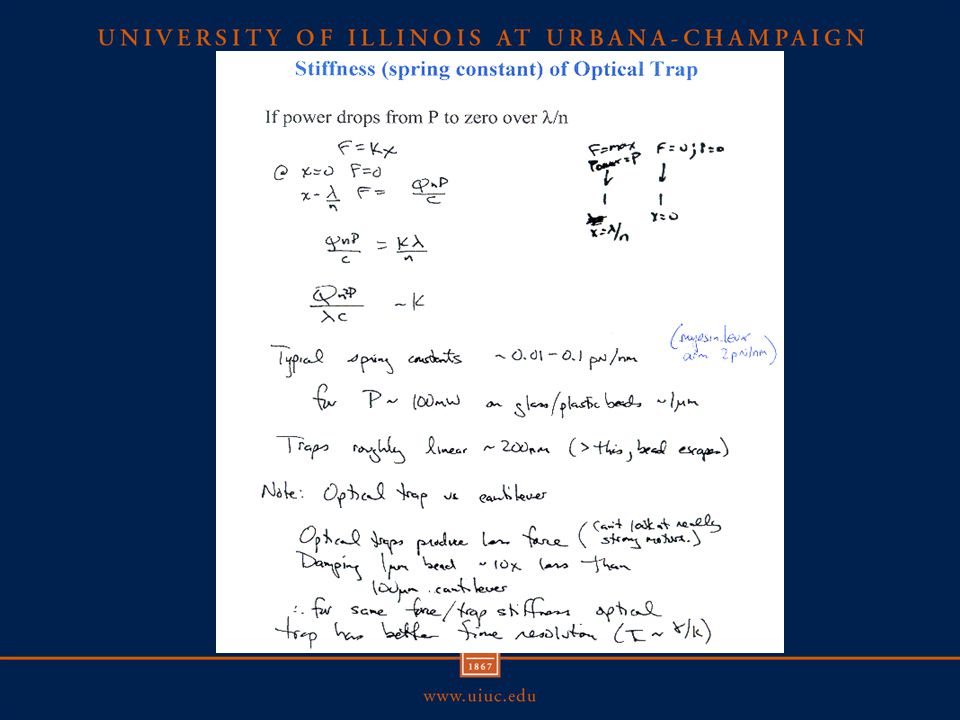 UNIVERSITY OF ILLINOIS AT URBANA-CHAMPAIGN
Stiffness (spring constant) of Optical Trap
If power drops from P to zero over λ/n
F = Kx
@ x=0 F=0
x - λ/n F = QnP/c
F=max F=0; P=0
Power=P
x=λ/n x=0
QnP/c = Kλ/n
Qn²P/λc ~ K
Typical spring constants ~ 0.01 - 0.1 pN/nm
(myosin lever arm 2 pN/nm)
for P ~ 100mW on glass/plastic beads ~1μm
Traps roughly linear ~ 200nm (> this, bead escapes)
Note: Optical trap vs cantilever
Optical traps produce less force (can't look at really strong motors.)
Damping 1μm bead ~ 10x less than
100μm cantilever
∴ for same force/trap stiffness optical
trap has better time resolution (τ ~ γ/k)
1867
www.uiuc.edu